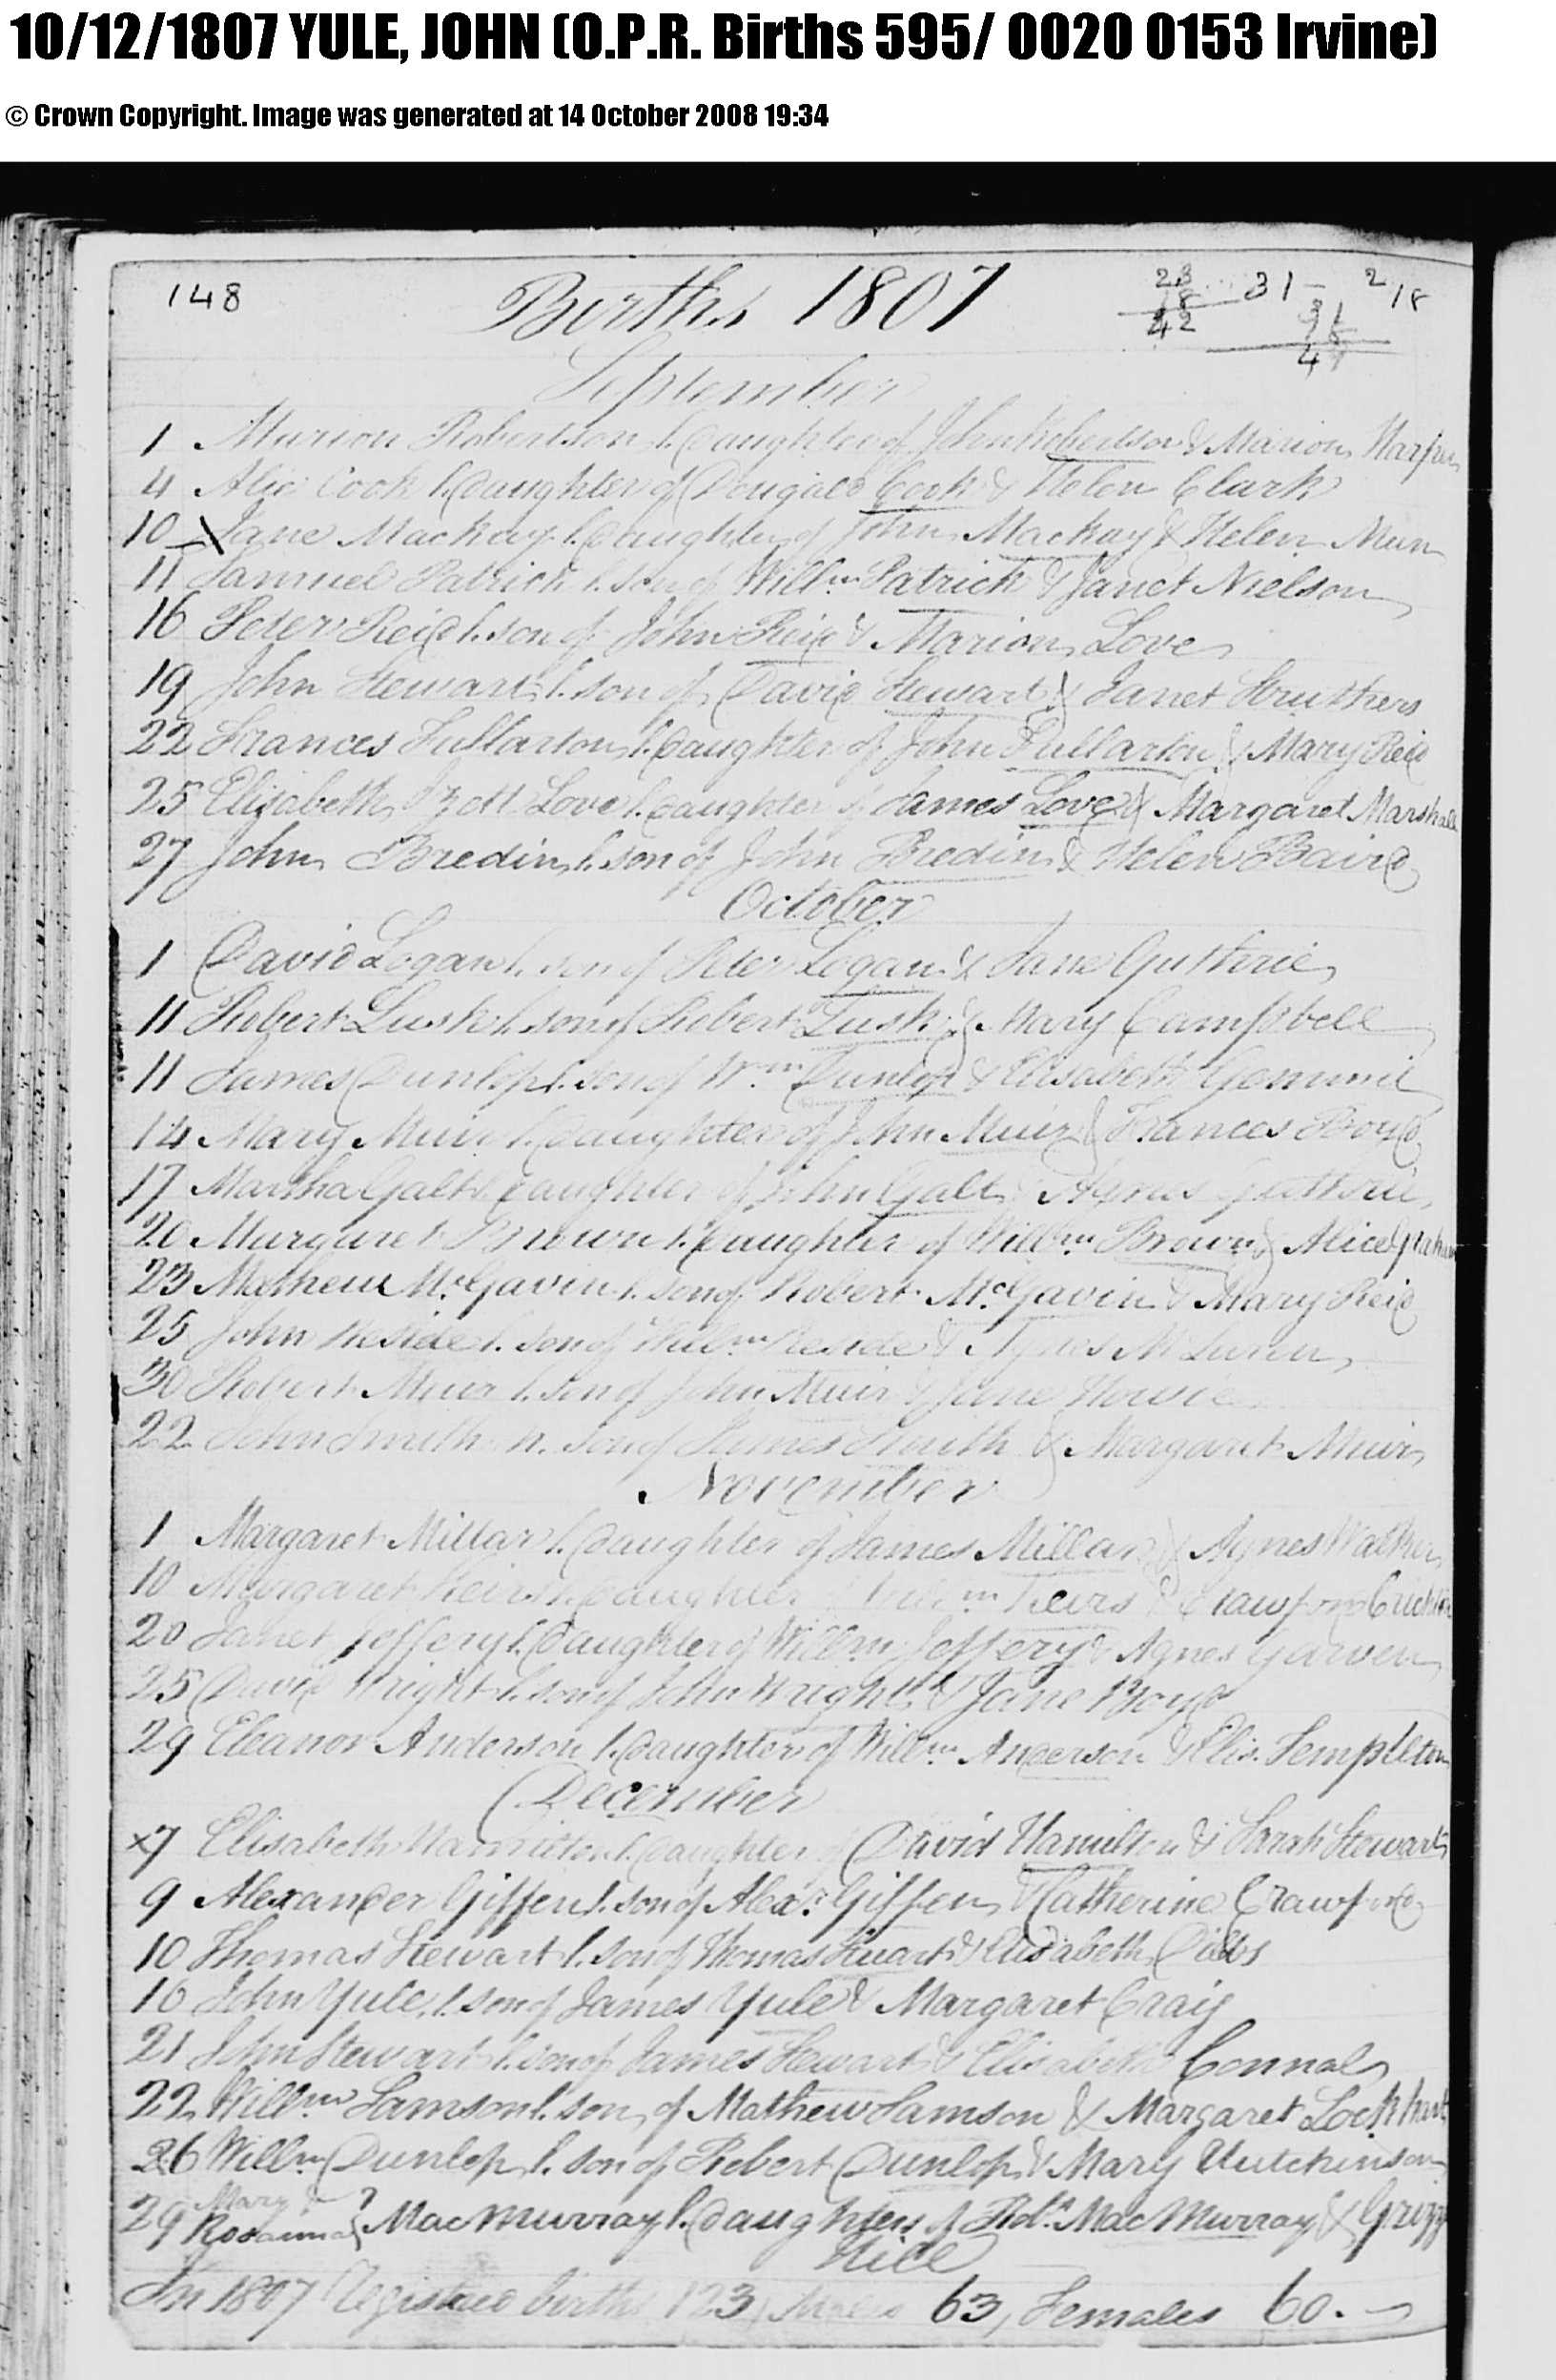 10/12/1807 YULE, JOHN (O.P.R. Births 595/ 0020 0153 Irvine)
© Crown Copyright. Image was generated at 14 October 2008 19:34
148 Births 1807
23 31 2/18
18 31
42
September
1 Marion Robertson l. Daughter of John Robertson & Marion
4 Alic Cook l. Daughter of Dougald Cook & Helen Clark
10 Jane Mackay l. Daughter of John Mackay & Helen Mun
11 Samuel Patrick l. son of Willm Patrick & Janet Nielson
16 Peter Reid l. son of John Reid & Marion Love
19 John Stewart l. son of David Stewart & Janet Struthers
22 Frances Fullarton l. Daughter of John Fullarton & Mary Reid
25 Elizabeth Love l. Daughter of James Love & Margaret Marshall
27 John Bredin l. son of John Bredin & Helen Baird
October
1 David Logan l. son of Peter Logan & Jane Guthrie
11 Robert Lusk l. son of Robert Lusk & Mary Campbell
11 James Dunlop l. son of Wm Dunlop & Elisabeth Gemmil
14 Mary Muir l. Daughter of John Muir & Frances Boyd
17 Martha Galt l. Daughter of John Galt & Agnes Guthrie
20 Margaret Brown l. Daughter of Willm Brown & Alice Graham
23 Mathew McGavin l. son of Robert McGavin & Mary Reid
25 John Reside l. son of Willm Reside & Agnes
30 Robert Muir l. son of John Muir & Jane Howie
22 John Smith n. son of James Smith & Margaret Muir
November
1 Margaret Millar l. Daughter of James Millar & Agnes Walker
10 Margaret Keirs l. Daughter of Willm Keirs & Crawford
20 Janet Jeffery l. Daughter of Willm Jeffery & Agnes Garven
25 David Wright l. son of John Wright & Jane Boyd
29 Eleanor Anderson l. Daughter of Willm Anderson & Elis. Templeton
December
x7 Elisabeth Hamilton l. Daughter of David Hamilton & Sarah Stewart
9 Alexander Giffen l. son of Alexr Giffen & Catherine Crawford
10 Thomas Stewart l. son of Thomas Stuart & Elisabeth
10 John Yule l. son of James Yule & Margaret Craig
21 John Stewart l. son of James Stewart & Elisabeth Connal
22 Willm Samson l. son of Mathew Samson & Margaret Lockhart
26 Willm Dunlop l. son of Robert Dunlop & Mary Hutchinson
29 Mary & Rosanna } MacMurray l. Daughters of Robt MacMurray & Grizz
Nice
In 1807 Registered births 123, Males 63, Females 60.